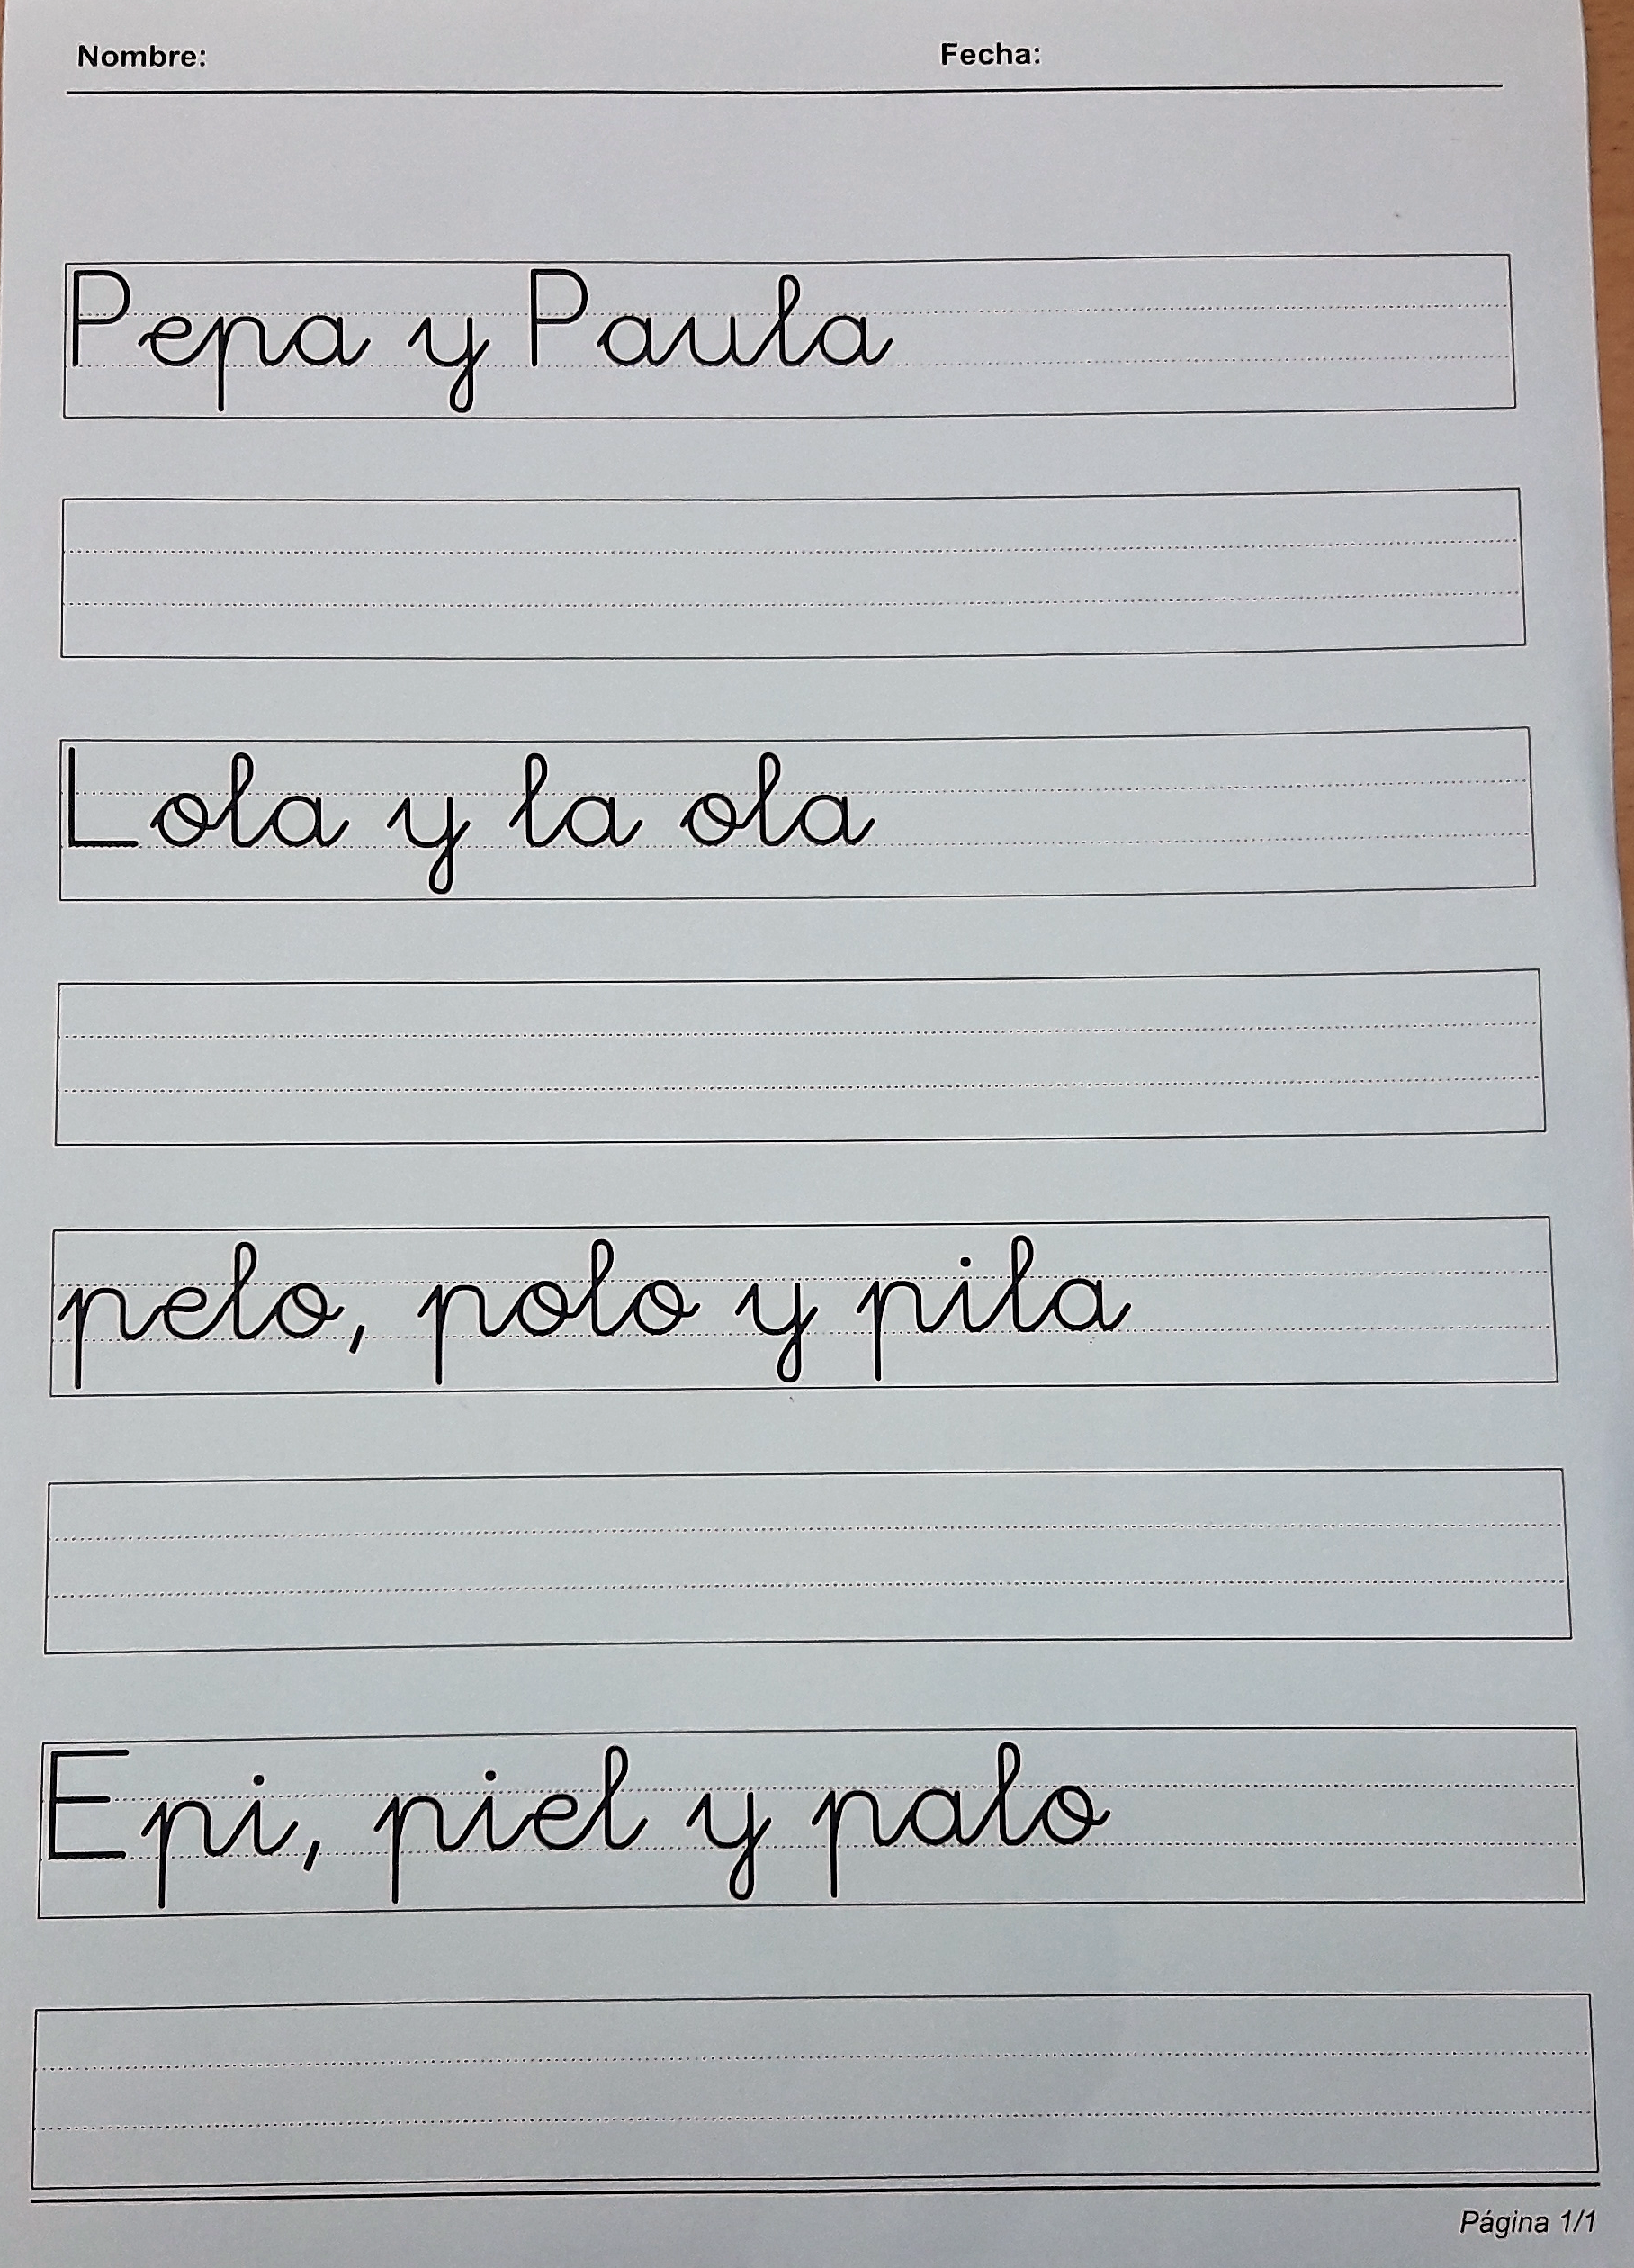 Nombre: Fecha:
Pepa y Paula
Lola y la ola
pelo, polo y pila
Epi, piel y palo
Página 1/1